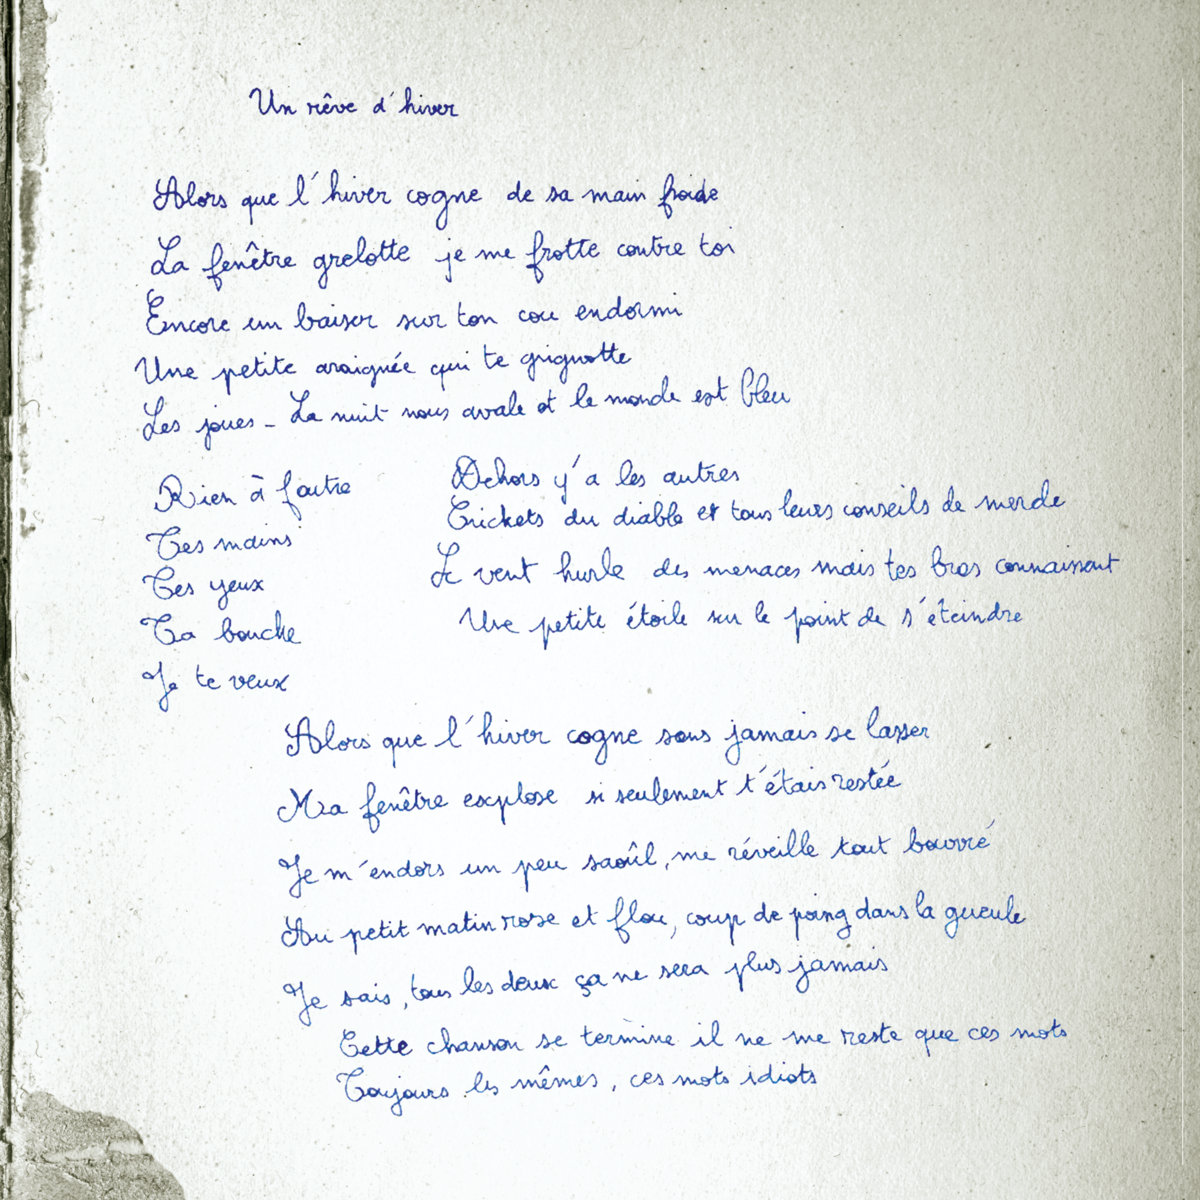 Un rêve d'hiver
Alors que l'hiver cogne de sa main froide
La fenêtre grelotte je me frotte contre toi
Encore un baiser sur ton cou endormi
Une petite araignée qui te grignotte
Les joues - La nuit nous avale et le monde est bleu
Rien à foutre
Tes mains
Tes yeux
Ta bouche
Je te veux
Dehors y'a les autres
Crickets du diable et tous leurs conseils de merde
Le vent hurle des menaces mais tes bras connaissent
Une petite étoile sur le point de s'éteindre
Alors que l'hiver cogne sans jamais se lasser
Ma fenêtre explose si seulement t'étais restée
Je m'endors un peu saoûl, me réveille tout bourré
Au petit matin rose et flou, coup de poing dans la gueule
Je sais, tous les deux ça ne sera plus jamais
Cette chanson se termine il ne me reste que ces mots
Toujours les mêmes, ces mots idiots